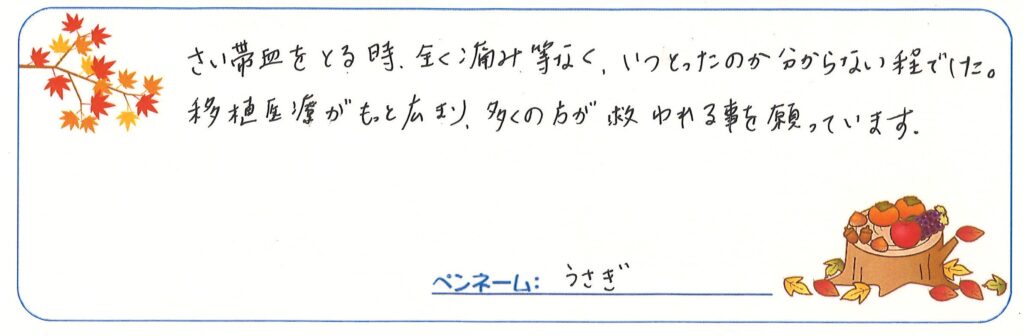 さい帯血をとる時、全く痛み等なく、いつとったのか分からない程でした。
移植医療がもっと広まり、多くの方が救われる事を願っています。
ペンネーム: うさぎ